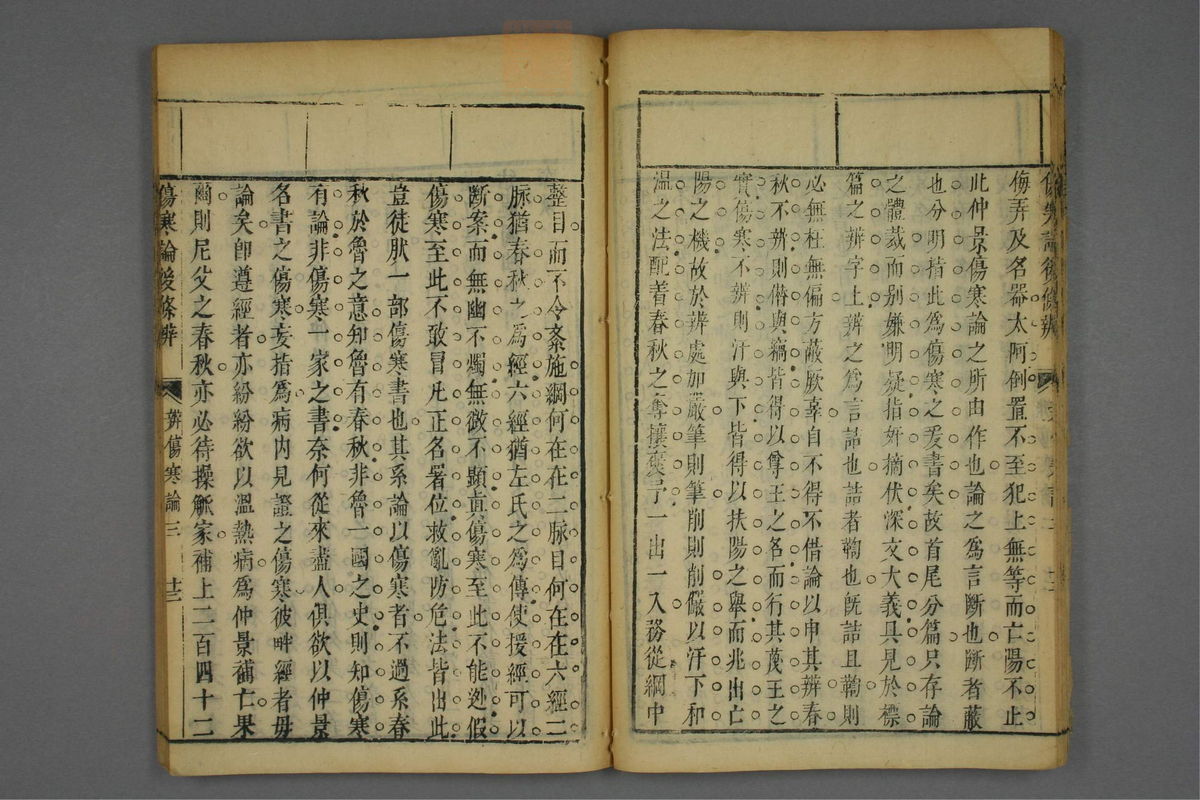 傷寒論後條辨
侮弄及名器太阿倒置不至犯上無等而亡陽不止
此仲景傷寒論之所由作也論之爲言斷也斷者蔽
也分明指此爲傷寒之爰書矣故首尾分篇只存論
之體裁而别嫌明疑指奸摘伏深文大義具見於標
篇之辨字上辨之爲言詰也詰者鞫也旣詰且鞫則
必無枉無偏方蔽厥辜自不得不借論以申其辨春
秋不辨則僭與竊皆得以尊王之名而行其蔑王之
實傷寒不辨則汗與下皆得以扶陽之舉而兆出亡
陽之機故於辨處加嚴筆則筆削則削嚴以汗下和
温之法配着春秋之奪攘褒予一出一入務從綱中
整目而不令紊施綱何在在二脉目何在在六經二
脉猶春秋之爲經六經猶左氏之爲傳使援經可以
斷案而無幽不燭無微不顯眞傷寒至此不能迯假
傷寒至此不敢冒凡正名署位救亂防危法皆出此
豈徒肰一部傷寒書也其系論以傷寒者不過系春
秋於魯之意知魯有春秋非魯一國之史則知傷寒
有論非傷寒一家之書奈何從來盡人俱欲以仲景
名書之傷寒妄指爲病内見證之傷寒彼畔經者毋
論矣卽遵經者亦紛紛欲以溫熱病爲仲景補亡果
爾則尼父之春秋亦必待操觚家補上二百四十二
傷寒論後條辨 辨傷寒論三 十三